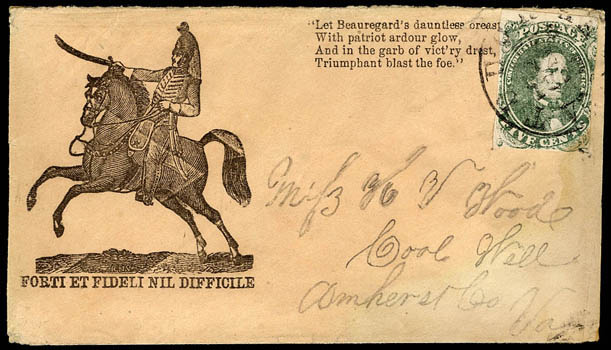 "Let Beauregard's dauntless breast
With patriot ardour glow,
And in the garb of vict'ry drest,
Triumphant blast the foe."
POSTAGE
CONFEDERATE STATES OF AMERICA
FIVE CENTS
FORTI ET FIDELI NIL DIFFICILE
Miss H V Wood
Cool Well
Amherst Co
Va